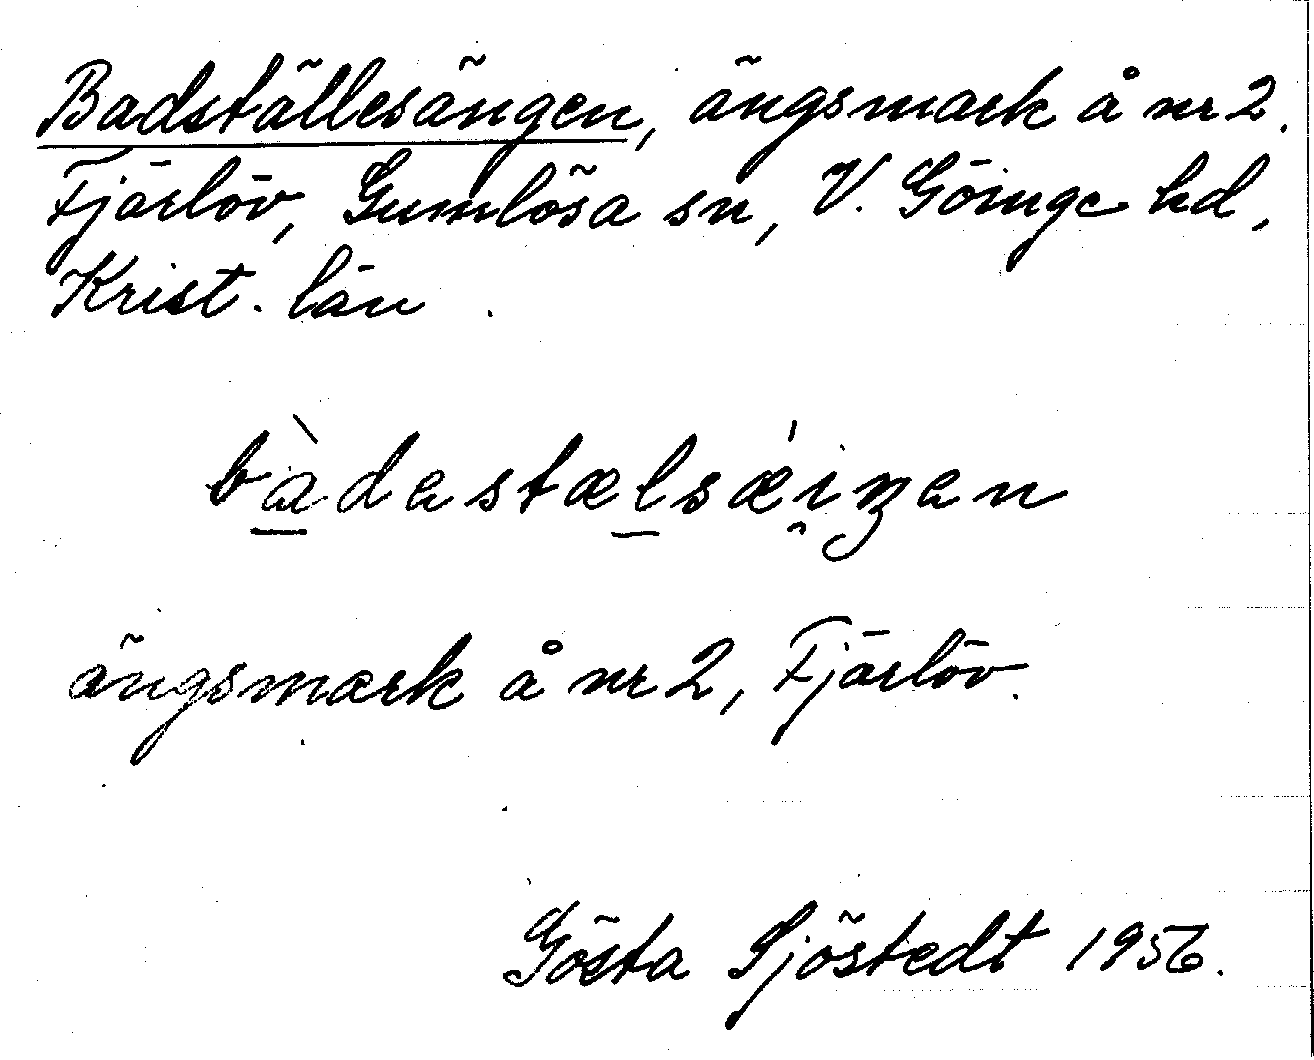 Badställesängen, ängsmark å nr 2.
Fjärlöv, Gumlösa sn, V. Göinge hd,
Krist. län.
bàdastælsǽi̯ŋan
ängsmark å nr 2, Fjärlöv.
Gösta Sjöstedt 1956.